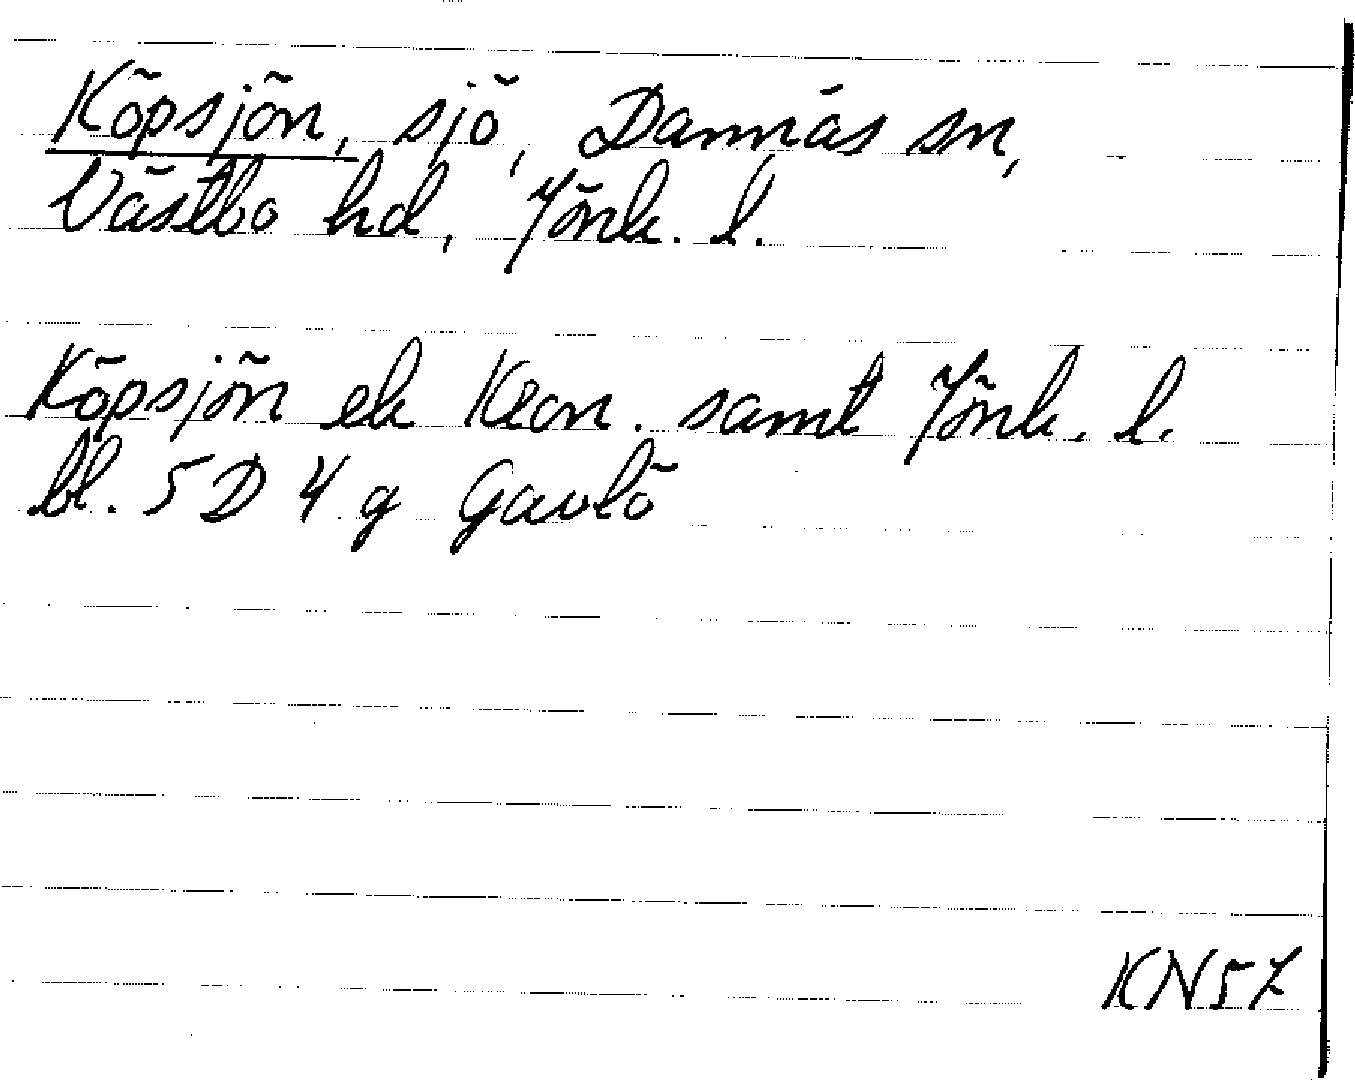 Köpsjön, sjö, Dannäs sn,
Västbo hd, Jönk. l.
Köpsjön ek Kron. samt Jönk. l.
bl. 5D 4 g Gavlö
KN57